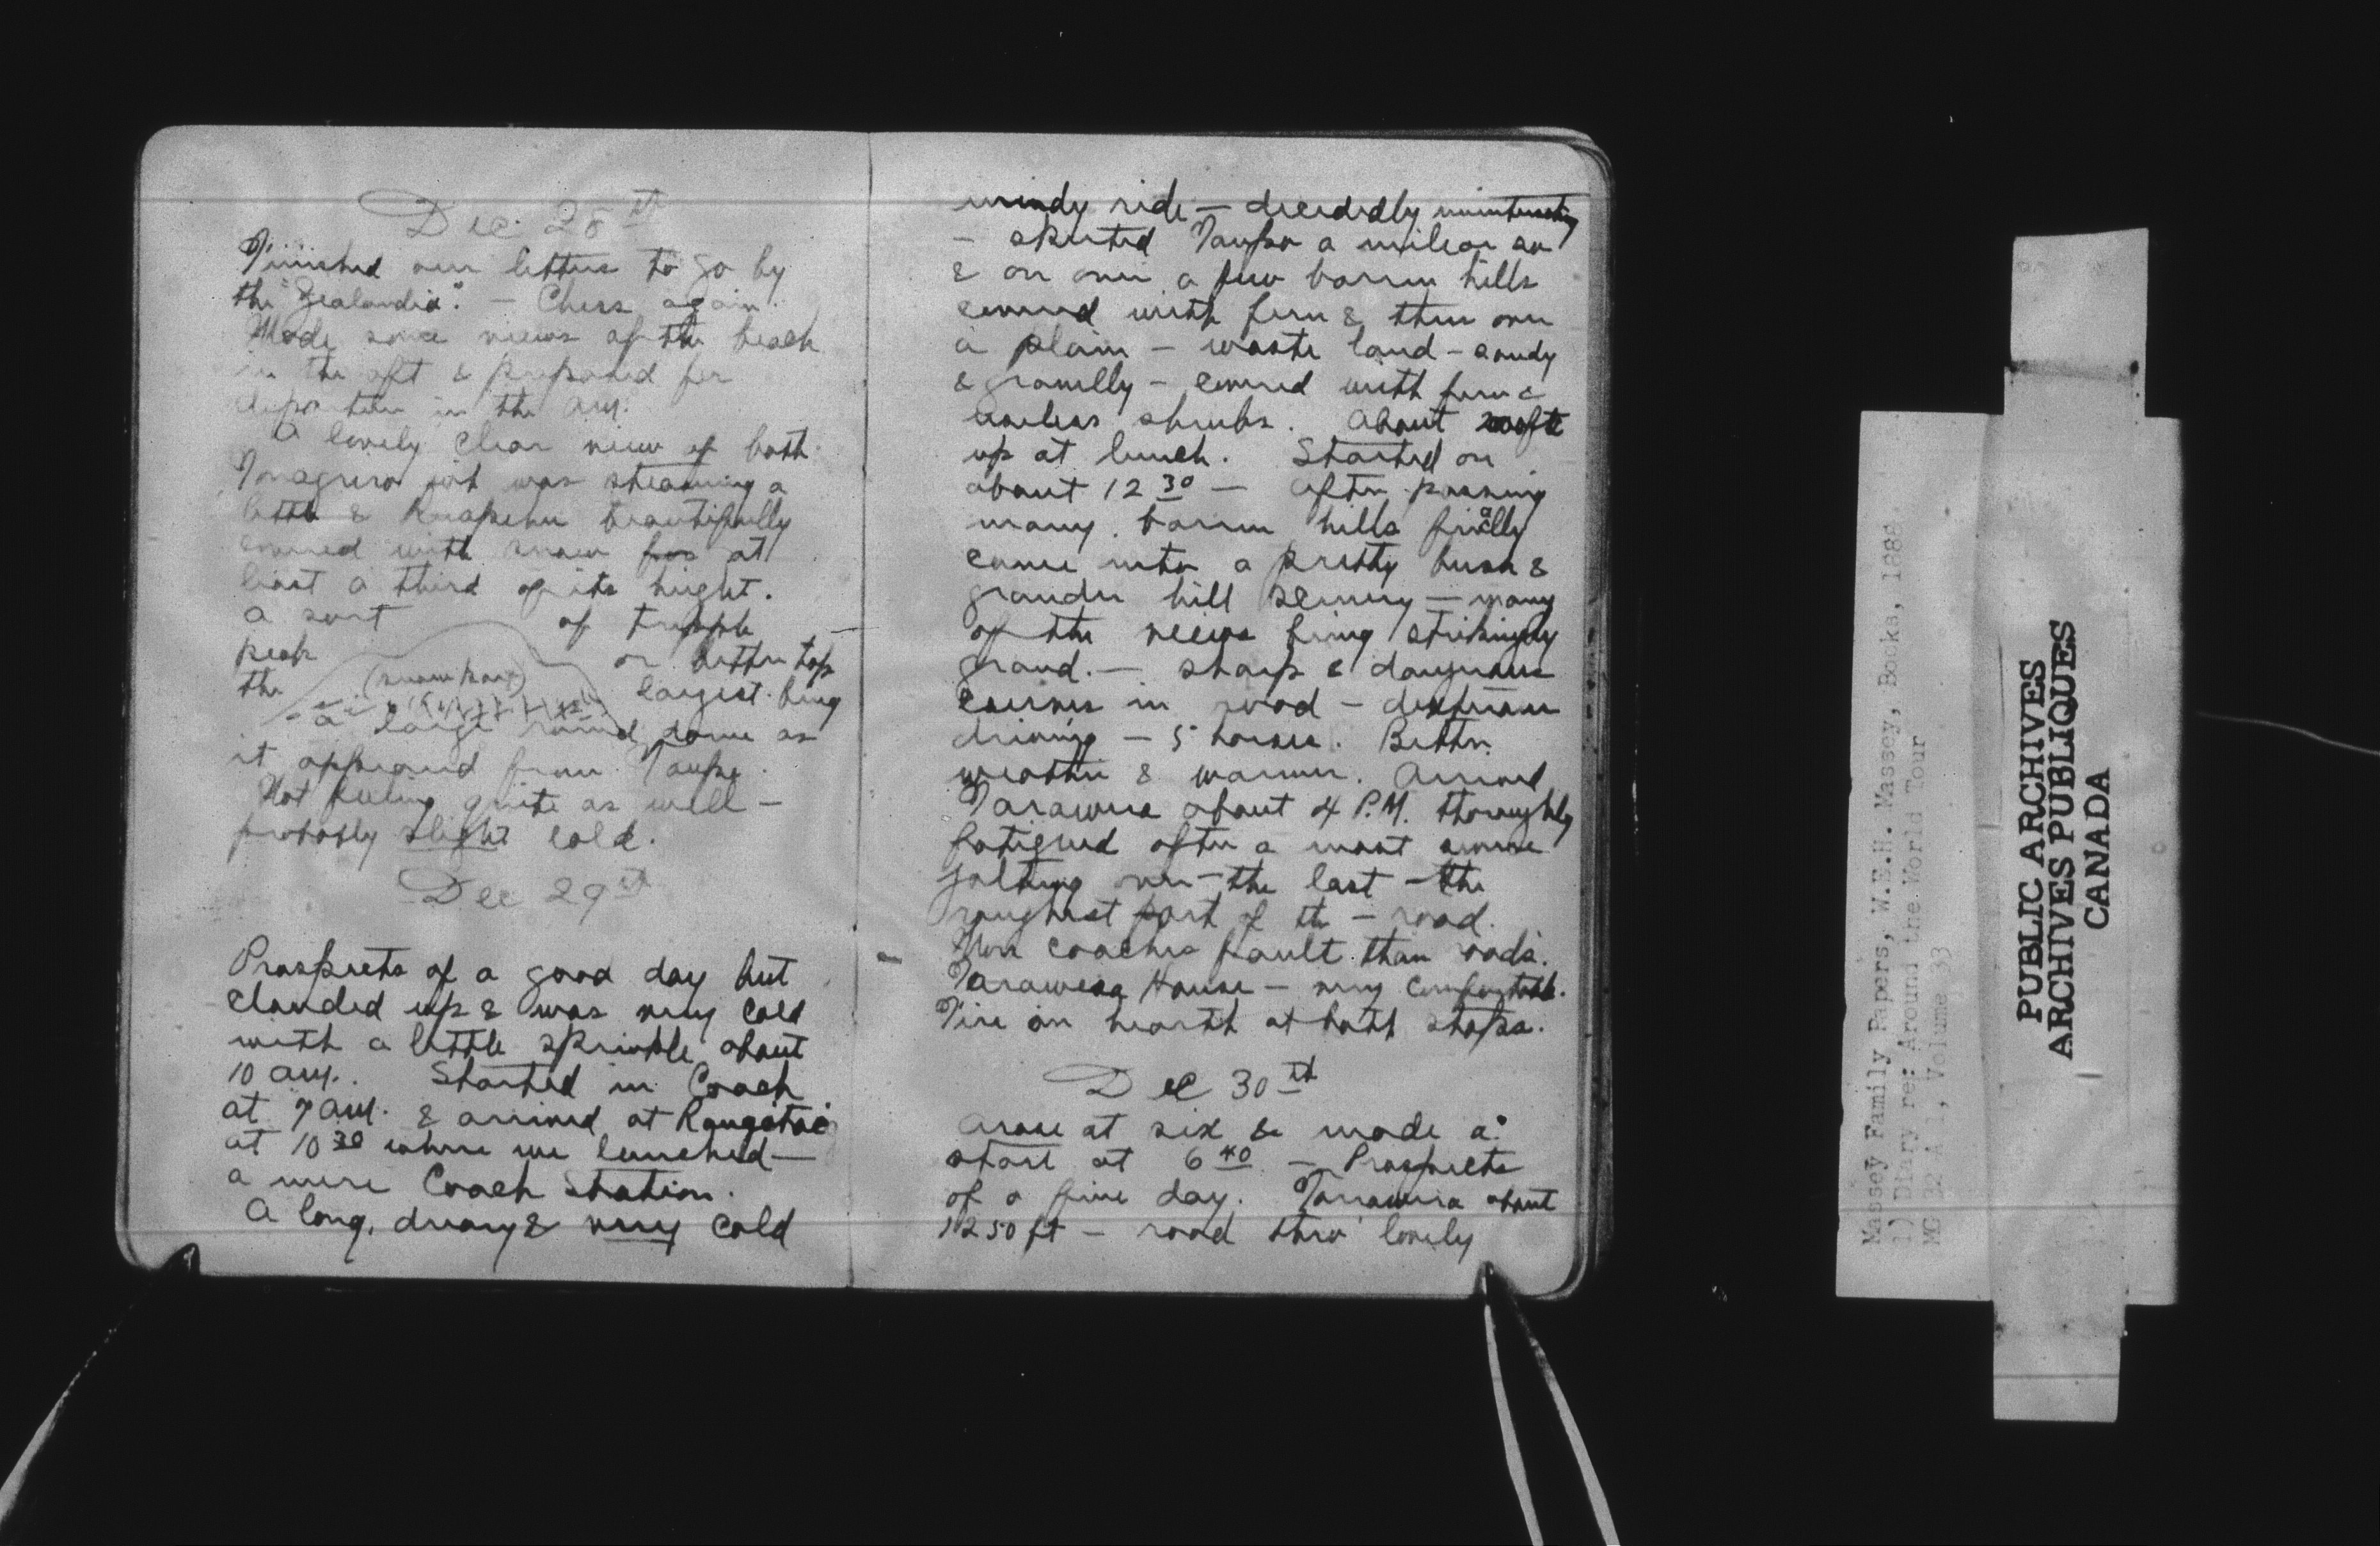 Dec. 28th
Finished our letters to go by
the "Zealandia". — Chess again.
Made some views of the beach
in the aft & prepared for
departure in the am.
A lovely clear view of both
Tongariro wh was steaming a
little & Ruapehu beautifully
covered with snow for at
least a third of its hight.
a sort of tripple
peak or better top
the (snow part) largest being
a large round dome as
it appeared from Taupo.
Not feeling quite as well —
probably slight cold.
Dec 29th
Prospects of a good day but
clouded up & was very cold
with a little sprinkle about
10 am. Started in Coach
at 7 am. & arrived at Rangitaiki
at 10 30 where we lunched —
a mere Coach Station.
A long, dreary & very cold
windy ride — decidedly uninteresting
— skirted Taupo a mile or so
& on over a few barren hills
covered with fern & then over
a plain — waste land — sandy
& gravelly — covered with fern &
useless shrubs. About 2000 ft
up at lunch. Started on
about 12 30 — after passing
many barren hills finally
came into a pretty bush &
grander hill scenery — many
of the views being strikingly
grand. — sharp & dangerous
curves in road — dexterous
driving — 5 horses. Better
weather & warmer. Arrived
Tarawera about 4 P.M. thoroughly
fatigued after a most severe
jolting over — the last — the
roughest part of the — road.
More coaches fault than roads.
Tarawera House — very comfortable.
Fire on hearth at both stops.
Dec 30th
Arose at six & made a
start at 6 40 — Prospects
of a fine day. Tarrawera about
1250 ft — road thro' lovely
Massey Family Papers, W.E.H. Massey, Books, 1888.
1) Diary re: Around the World Tour
MG 32 A 1, Volume 33
PUBLIC ARCHIVES
ARCHIVES PUBLIQUES
CANADA